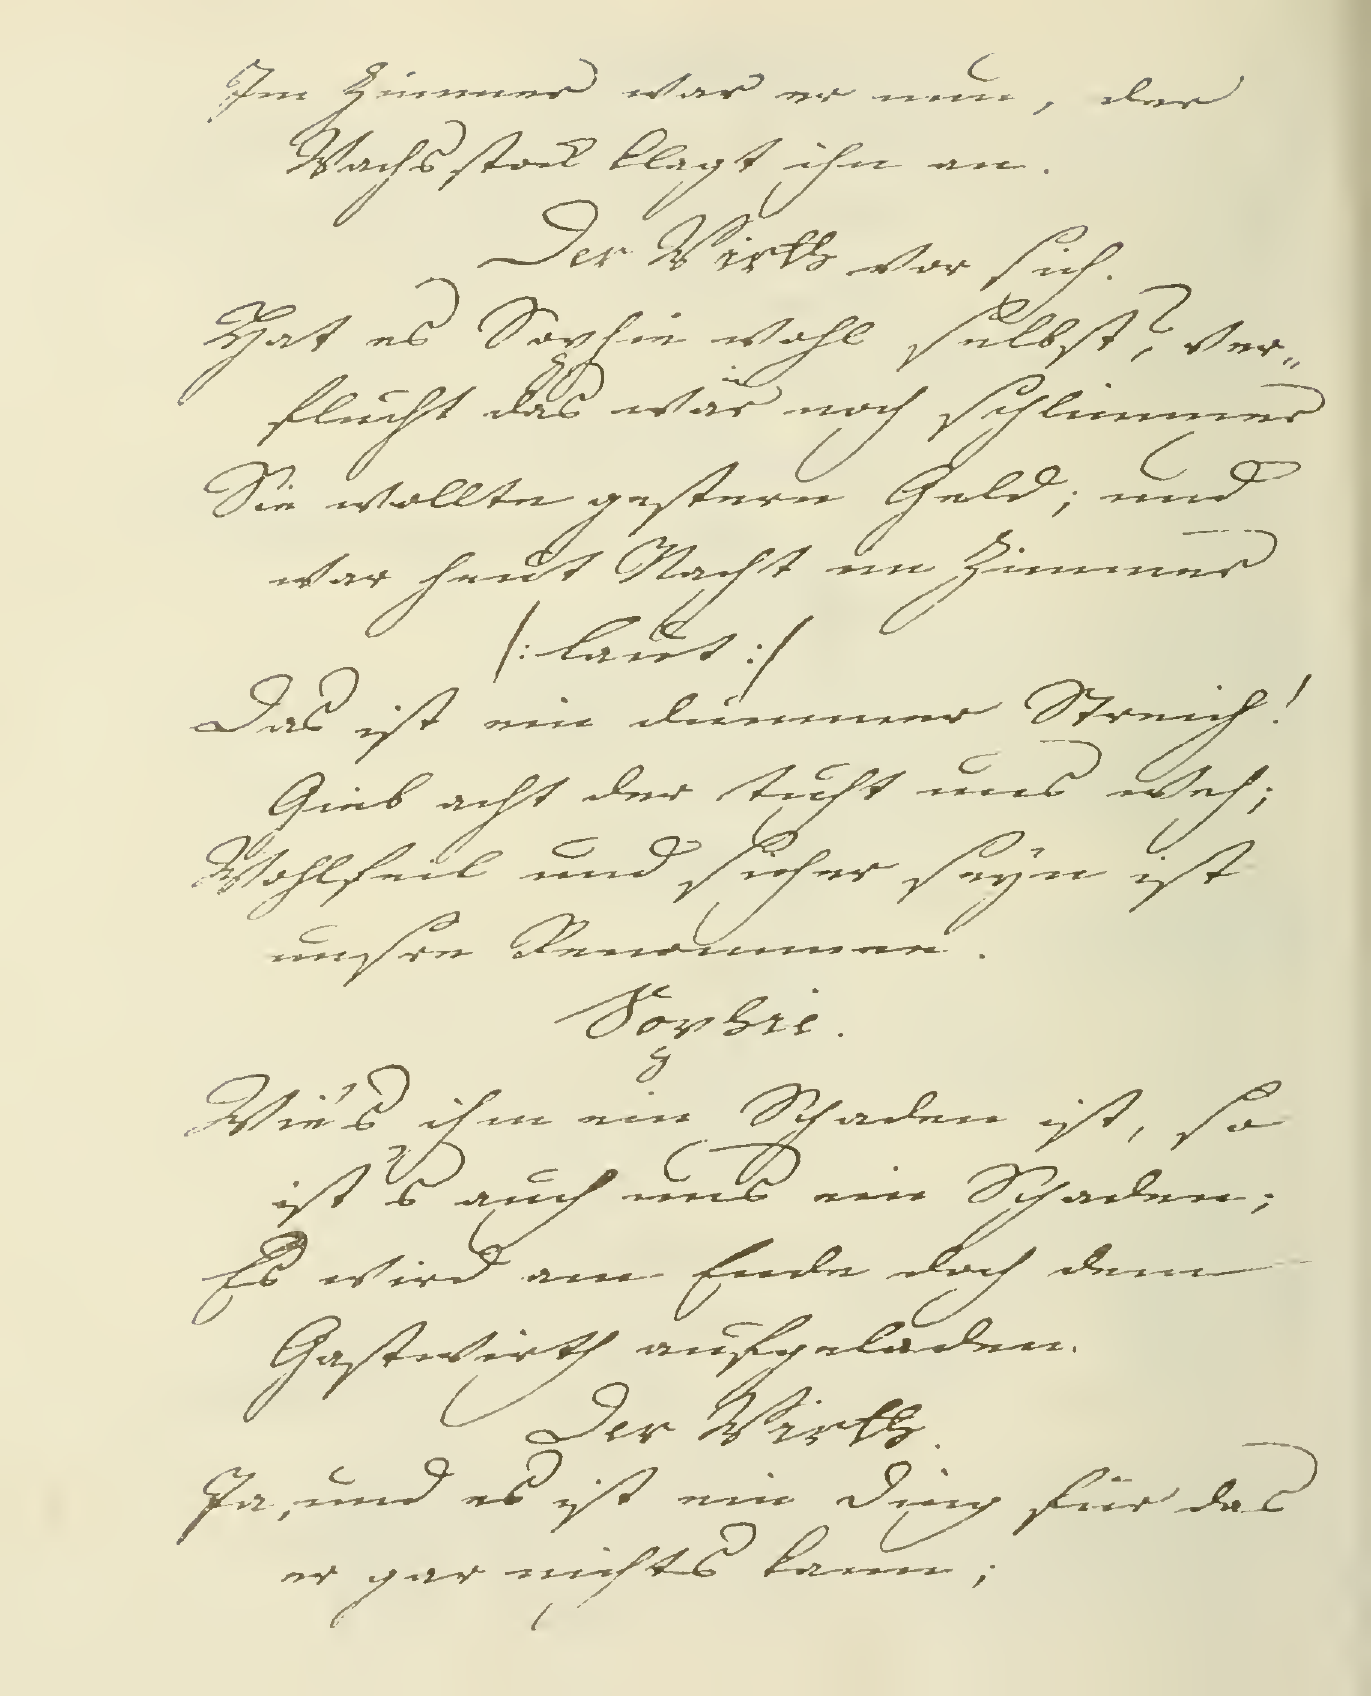 Im Zimmer war er nun, der
Wachsstock klagt ihn an.
Der Wirth vor sich.
Hat es Sophie wohl selbst? Ver„
flucht das wär noch schlimmer
Sie wollte gestern Geld; und
war heut Nacht im Zimmer
/: laut :/
Das ist ein dummer Streich!
Gieb acht der tuht uns weh;
Wohlfeil und sicher seyn ist
unsre Renommee.
Sophie.
Wie's ihm ein Schaden ist, so
ist's auch uns ein Schaden;
Es wird am Ende doch dem
Gastwirth aufgeladen.
Der Wirth.
Ja, und es ist ein Ding für das
er gar nichts kann;